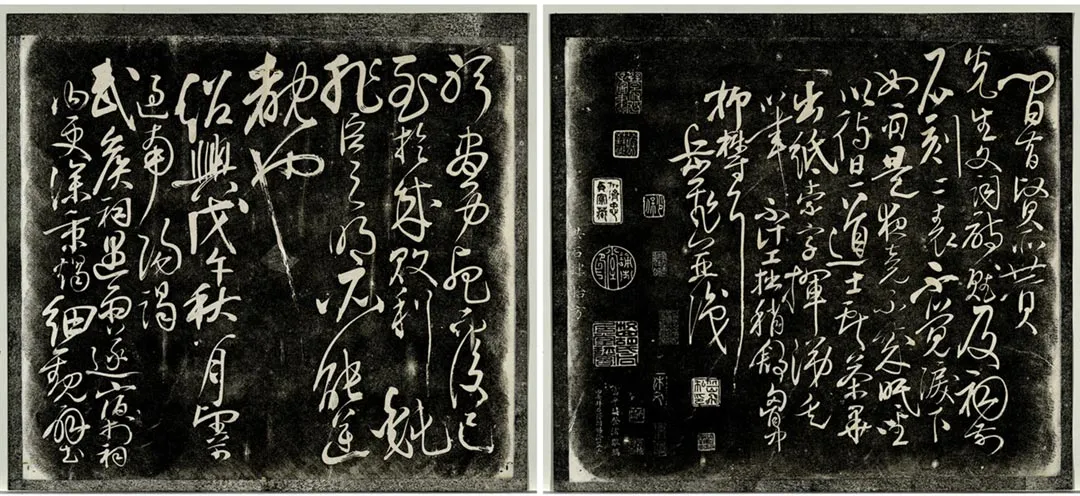 躬盡力死而後已
至於成敗利鈍
非臣之明所能逆
覩也
紹興戊午秋八月望前
過南陽謁
武侯祠遇雨遂宿於祠
內更深秉燭細觀壁
間昔賢所贊
先生文詞詩賦及祠前
石刻二表不覺淚下
如雨是夜竟不成眠坐
以待旦道士獻茶畢
出紙索字揮涕走
筆不計工拙稍舒胸
中抑鬱耳
岳飛並識